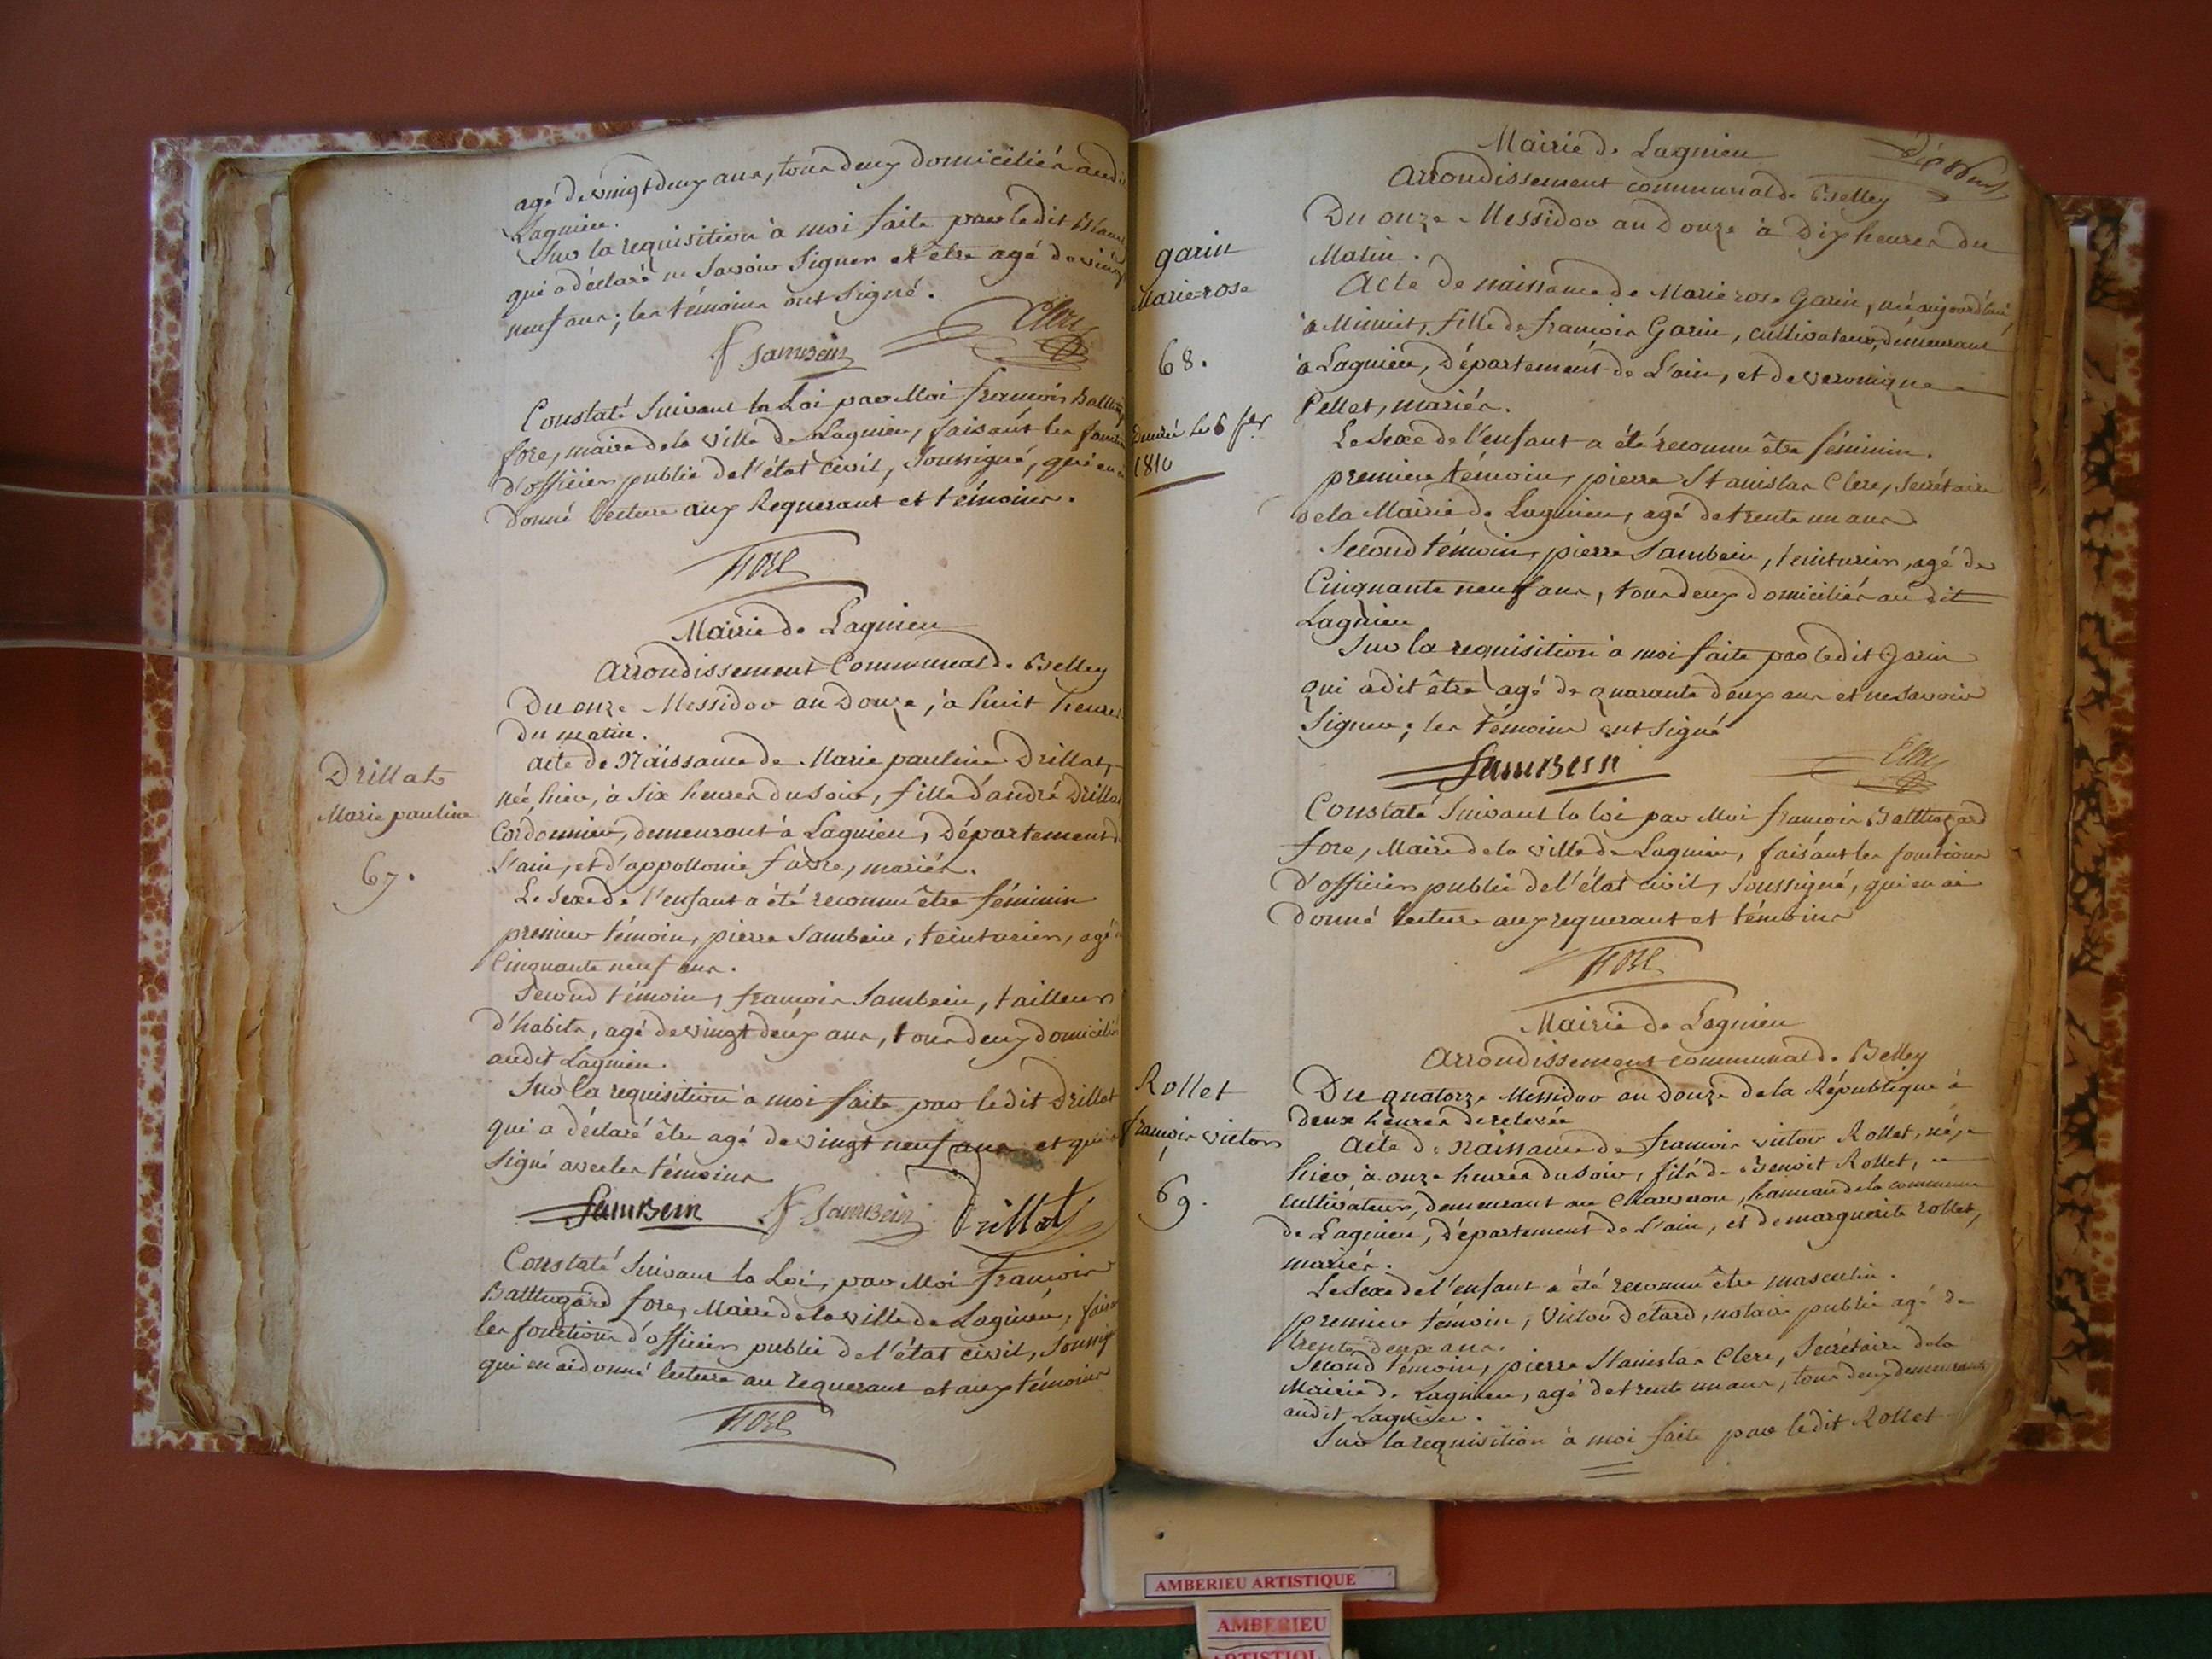 agé de vingt deux ans, tous deux domiciliés audit
Lagnieu.
Sur la requisition à moi faite par ledit
qui a déclaré ne savoir signer et être agé de vingt
neuf ans; les témoins ont signé.
f samBein Clerc
Constaté suivant la Loi par Moi françois Balthaz
fore, maire de la ville de Lagnieu, faisant les fonctio
d'officier public de l'état civil, soussigné, qui en ai
donné lecture aux Requerant et témoins.
FORE
Mairie de Lagnieu
Arrondissement Communal de Belley
Du onze Messidor an Douze, à huit heures
du matin.
Drillat
Marie pauline
67.
acte de Naissance de Marie pauline Drillat,
née hier, à six heures du soir, fille d'andré Drillat
Cordonnier, demeurant à Lagnieu, Département de
L'ain, et d'appollonie favre, mariés.
Le sexe de l'enfant a été reconnu être féminin
premier témoin, pierre Sambein, teinturier, agé de
Cinquante neuf ans.
Second témoin, françois Sambein, tailleur
d'habits, agé de vingt deux ans, tous deux domiciliés
audit Lagnieu.
Sur la requisition à moi faite par ledit Drillat
qui a déclaré être agé de vingt neuf ans et qui a
signé avec les témoins
SamBein f SamBein Drillat
Constaté suivant la Loi, par Moi François
Balthazard fore, Maire de la ville de Lagnieu, faisan
les fonctions d'officier public de l'état civil, soussig
qui en ai donné lecture au requerant et aux témoins
FORE
Mairie de Lagnieu
Arrondissement communal de Belley
Du onze Messidor an Douze à Dix heures du
Matin.
garin
Marie-rose
68.
1810
Acte de naissance de Marie rose Garin, née aujourd'hui,
à Minuit, fille de françois Garin, cultivateur, demeurant
à Lagnieu, Département de L'ain, et de veronique
Pellet, mariés.
Le sexe de l'enfant a été reconnu être féminin.
premier témoin, pierre Stanislas Clerc, Secrétaire
de la Mairie de Lagnieu, agé de trente un ans
Second témoin, pierre Sambein, teinturier, agé de
Cinquante neuf ans, tous deux domiciliés au dit
Lagnieu
Sur la requisition à moi faite par ledit Garin
qui a dit être agé de quarante deux ans et ne savoir
Signer; les témoins ont signé
SamBein Clerc
Constaté suivant la loi par Moi françois Balthazard
fore, Maire de la ville de Lagnieu, faisant les fonctions
d'officier public de l'état civil, soussigné, qui en ai
donné lecture aux requerant et témoins
FORE
Mairie de Lagnieu
Arrondissement communal de Belley
Rollet
françois victor
69.
Du quatorze Messidor an Douze de la République à
deux heures de relevée
Acte de Naissance de françois victor Rollet, né
hier, à onze heures du soir, fils de Benoit Rollet,
cultivateur, demeurant au Charveron, hameau de la commune
de Lagnieu, département de L'ain, et de marguerite rollet,
mariés.
Le sexe de l'enfant a été reconnu être masculin.
premier témoin, victor detard, notaire public agé de
trente deux ans.
Second témoin, pierre Stanislas Clerc, Secrétaire de la
Mairie de Lagnieu, agé de trente un ans, tous deux demeurants
audit Lagnieu.
Sur la requisition à moi faite par ledit Rollet
AMBERIEU ARTISTIQUE
AMBERIEU